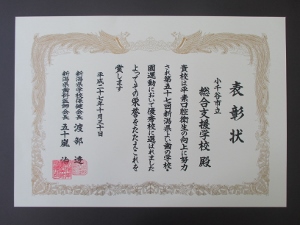 表彰状
小千谷市立
総合支援学校 殿
貴校は平素口腔衛生の向上に努力
され第五十七回新潟県よい歯の学校
園運動において優秀校に選ばれました
よってその栄誉をたたえこれを
賞します
平成二十七年十月三十日
新潟県学校保健会長 渡部 透
新潟県歯科医師会長 五十嵐 治